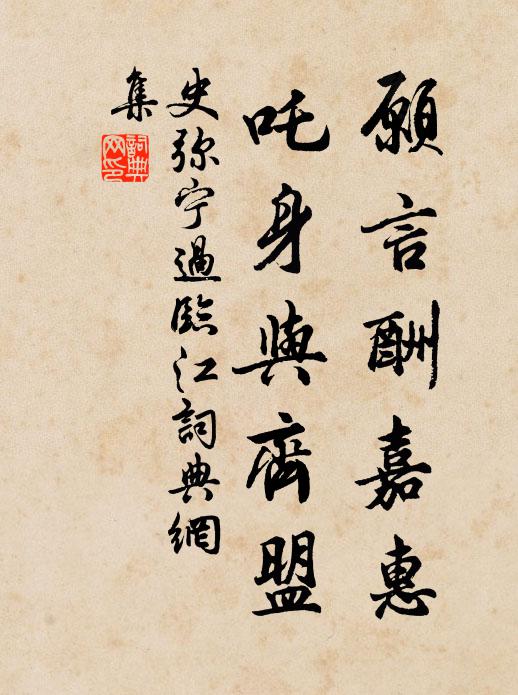 願言酬嘉惠
吒身與齊盟
史弥宁過臨江詞典網
集
詞典网印